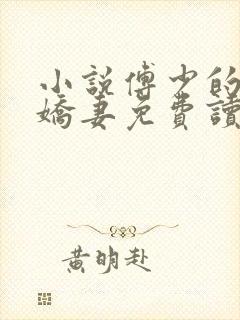 小說傅少的
嬌妻免費讀
黃明赴